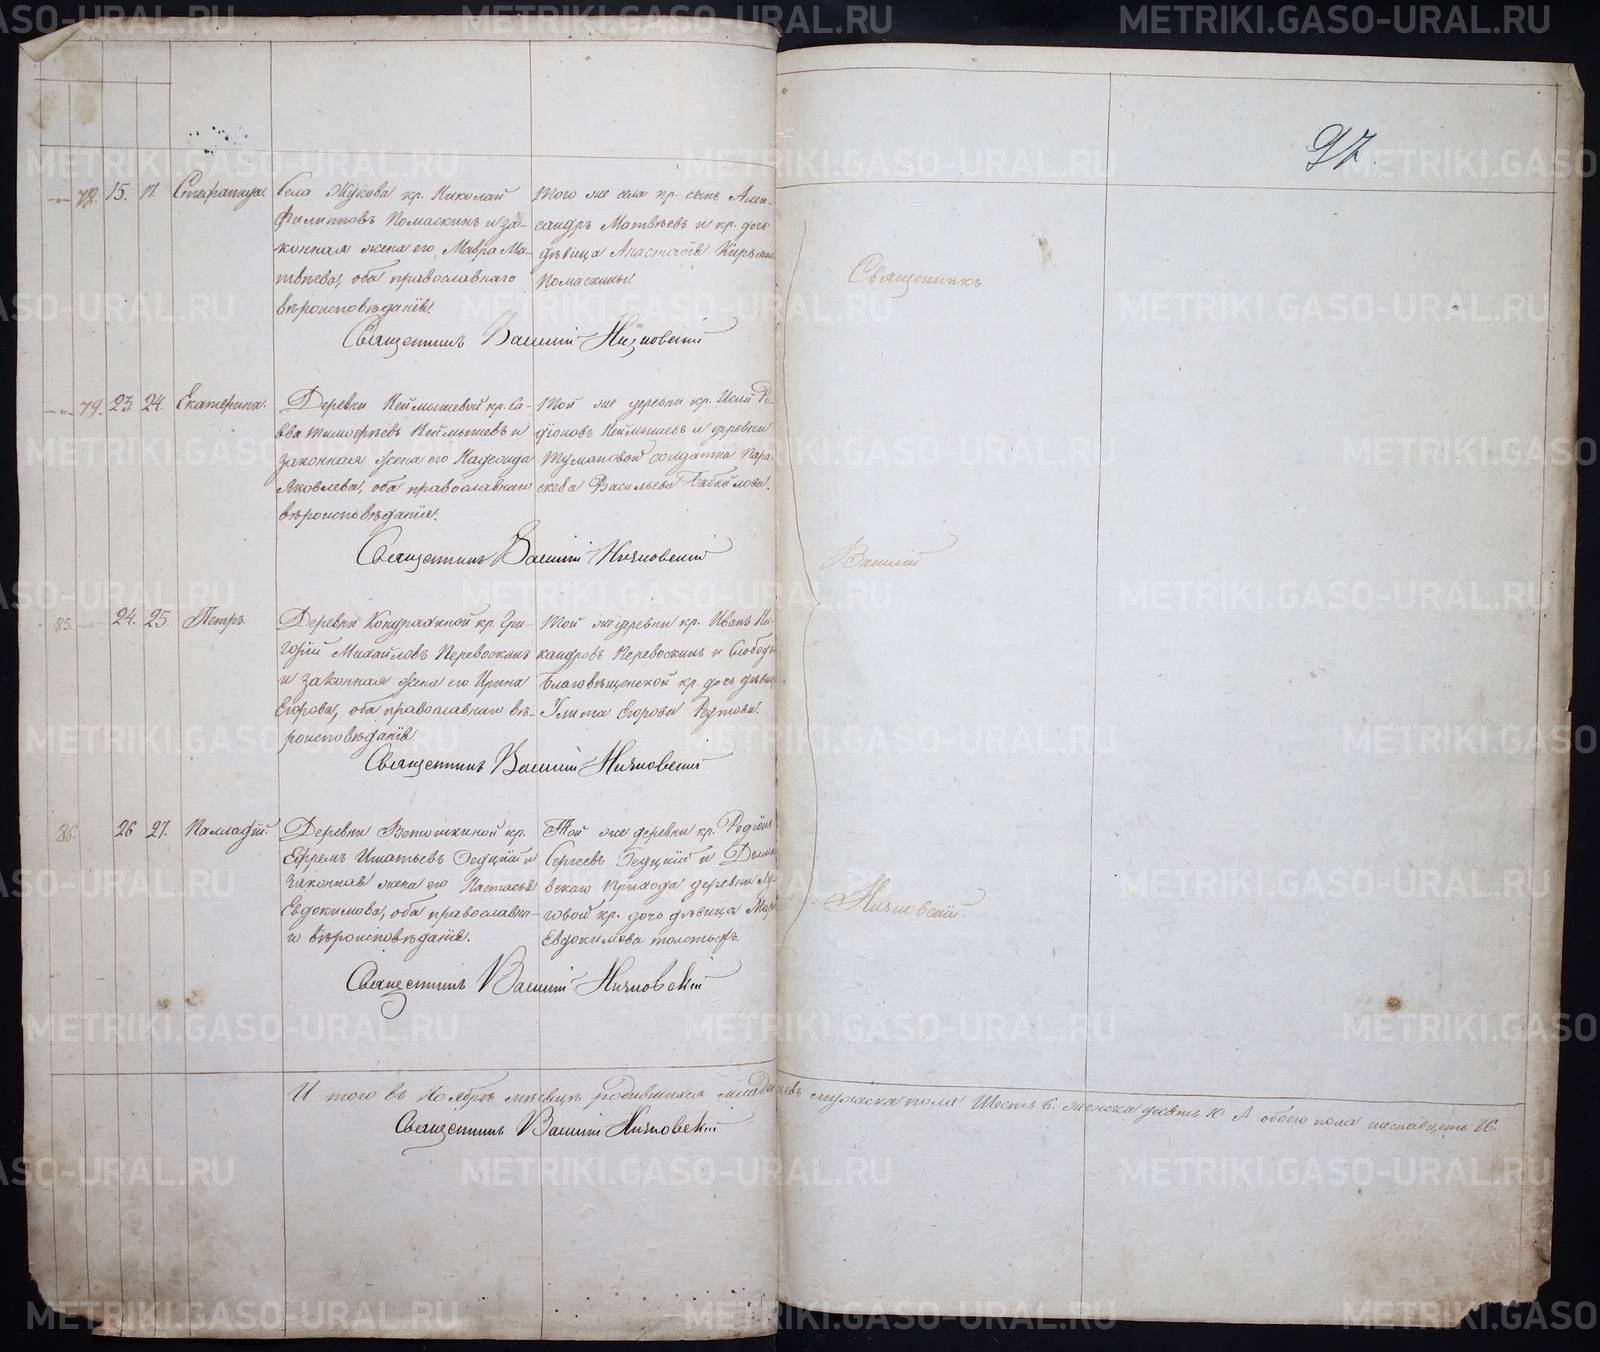 97.
78. 15. 17. Стефанида.
Села Жукова кр. Николай
Филипповъ Помаскинъ и за-
конная жена его Мавра Ма-
твѣева, оба православнаго
вѣроисповѣданія.
Того же села кр. сынъ Алек-
сандръ Матвѣевъ и кр. дочь
дѣвица Анастасія
Помаскины.
Священникъ Василій
79. 23. 24. Екатерина.
Деревни Кеймышевой кр. Са-
вва Тимофѣевъ Кеймышевъ и
законная жена его Надежда
Яковлева, оба православнаго
вѣроисповѣданія.
Той же деревни кр.
діоновъ Кеймышевъ и деревни
Тумановой солдатка Пара-
скева Васильева Бабайлова.
Священникъ Василій
85. 24. 25. Петръ.
Деревни кр. Гри-
горій Михайловъ Перевоскинъ
и законная жена его Ирина
Егорова, оба православнаго вѣ-
роисповѣданія.
Той же деревни кр. Иванъ Ни-
кандровъ Перевоскинъ и Слободы
Благовѣщенской кр. дочь дѣвица
Улита Егорова
Священникъ Василій
86. 26 27. Палладій.
Деревни Ветошкиной кр.
Ефремъ Игнатьевъ и
законная жена его Настасья
Евдокимова, оба православна-
го вѣроисповѣданія.
Той же деревни кр. Родіонъ
Сергеевъ и
вскаго прихода деревни Лу-
говой кр. дочь дѣвица
Евдокимова
Священникъ Василій
Священникъ
Василій
И того въ Ноябрѣ мѣсяцѣ родившихся младенцевъ мужеска пола Шесть 6. женска десять 10 А обоего пола шестнадцать 16.
Священникъ Василій
METRIKI.GASO-URAL.RU